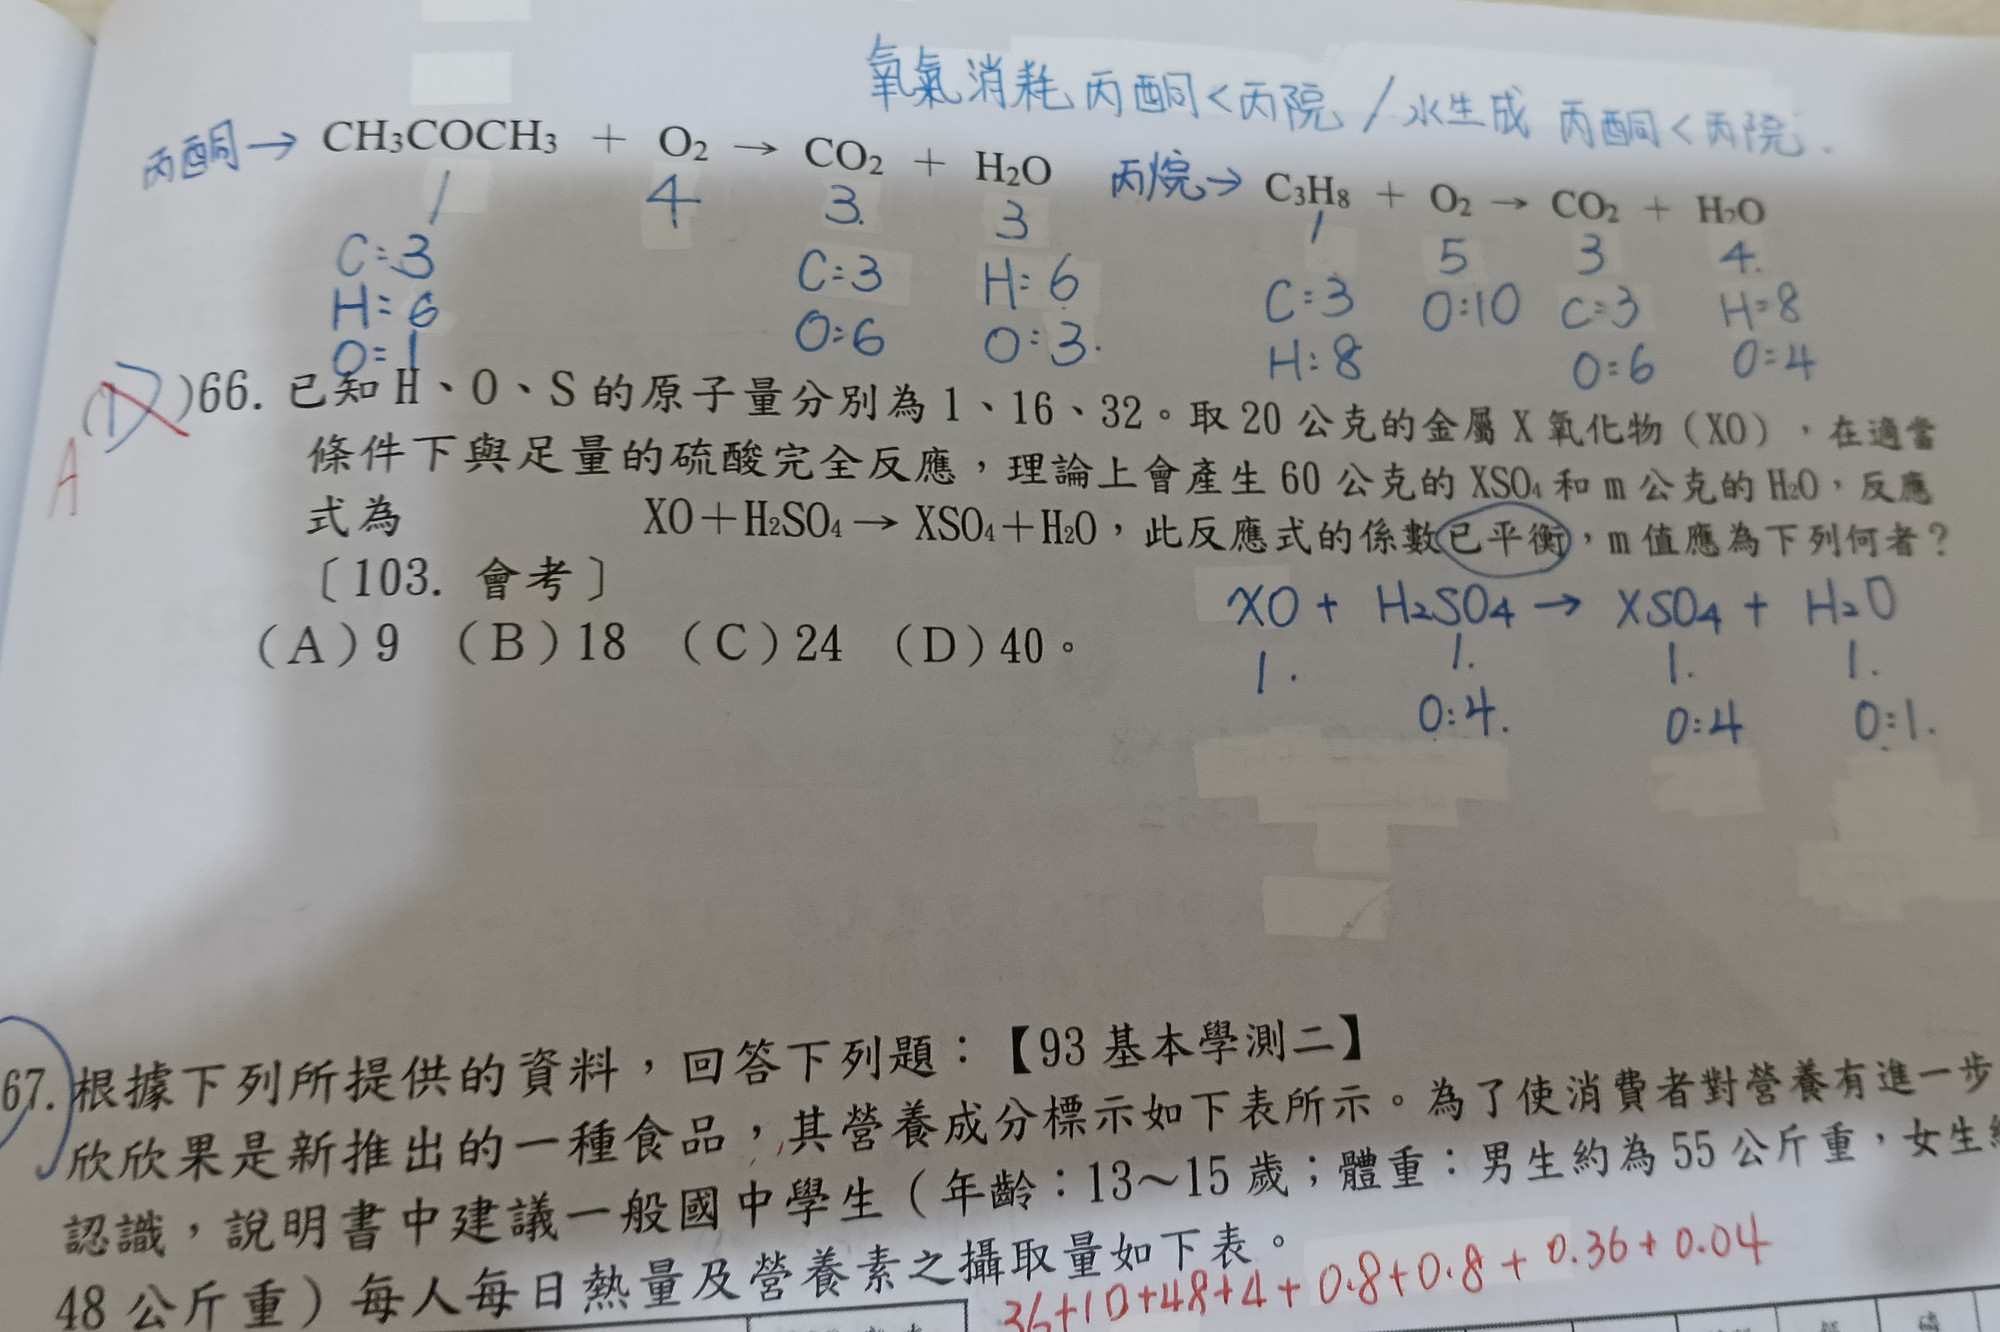 氧氣消耗 丙酮<丙院 / 水生成 丙酮<丙院.
丙酮→ CH3COCH3 + O2 → CO2 + H2O
1 4 3. 3
C:3 C:3 H:6
H:6 O:6 O:3.
O=1
丙烷→ C3H8 + O2 → CO2 + H2O
1 5 3 4.
C:3 O:10 C:3 H=8
H:8 O:6 O=4
A (D)66. 已知 H、O、S 的原子量分別為 1、16、32。取 20 公克的金屬 X 氧化物（XO），在適當
條件下與足量的硫酸完全反應，理論上會產生 60 公克的 XSO4 和 m 公克的 H2O，反應
式為 XO＋H2SO4→ XSO4＋H2O，此反應式的係數已平衡，m 值應為下列何者？
〔103. 會考〕
（A）9 （B）18 （C）24 （D）40。
XO + H2SO4 → XSO4 + H2O
1. 1. 1. 1.
O:4. O:4 O:1.
67. 根據下列所提供的資料，回答下列題：【93 基本學測二】
欣欣果是新推出的一種食品，其營養成分標示如下表所示。為了使消費者對營養有進一步
認識，說明書中建議一般國中學生（年齡：13～15 歲；體重：男生約為 55 公斤重，女生
48 公斤重）每人每日熱量及營養素之攝取量如下表。
36+10+48+4+0.8+0.8+0.36+0.04